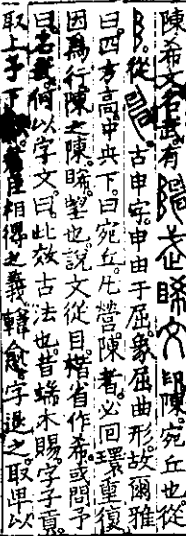 陳希文名武有陳武睎文印陳宛丘也從
𨸏從申古申字申由于屈象屈曲形故爾雅
曰四方高中央下曰宛丘凡營陳者必回環重復
因爲行陳之陳睎望也說文從目稀省作希或問予
曰名武何以字文曰此效古法也昔端木賜字子貢
取上予下之義相得之義韓愈字退之取卑以